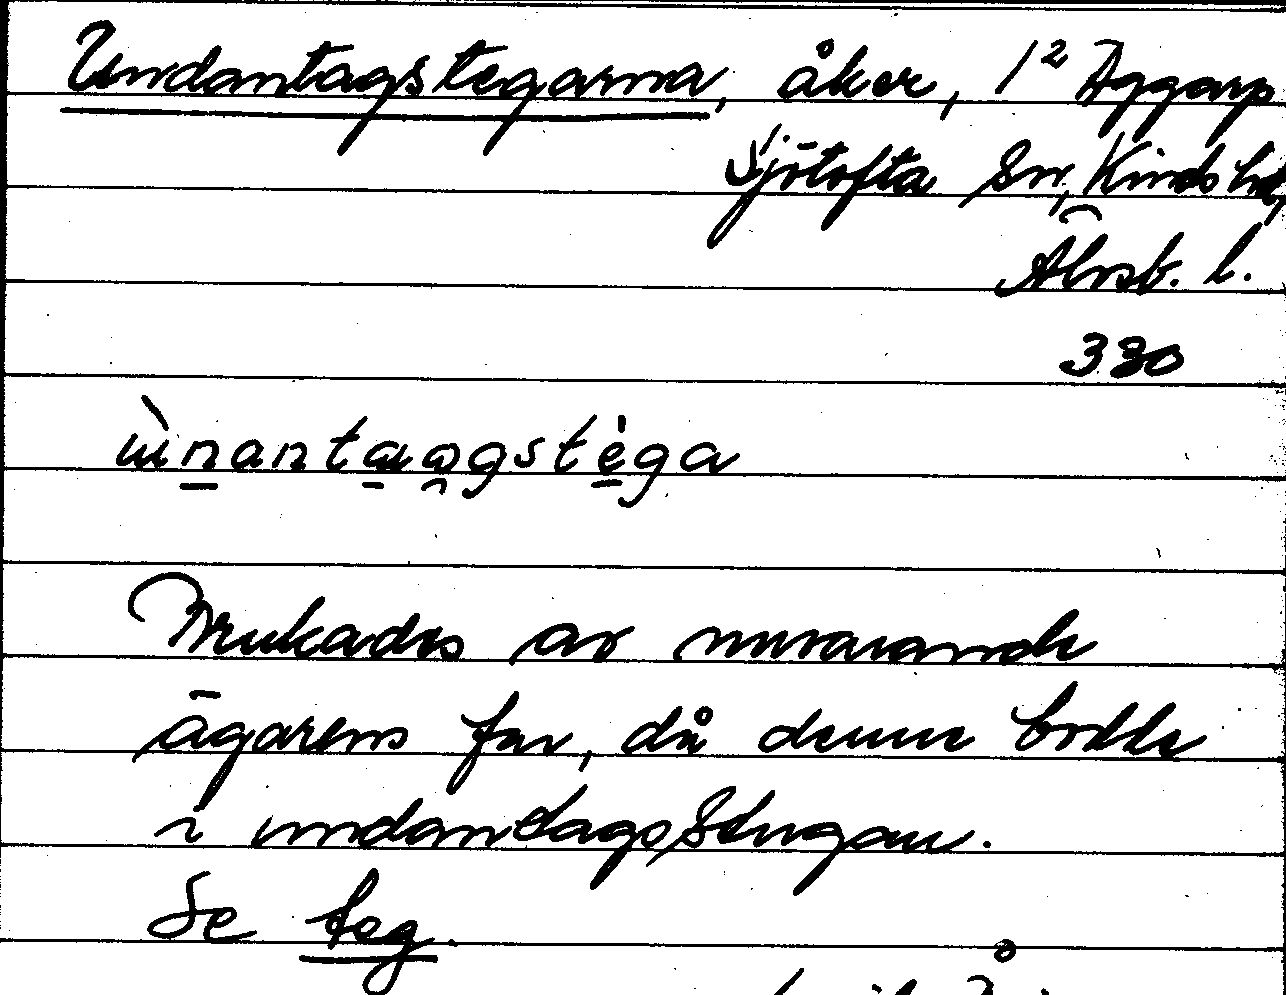 Undantagstegarna, åker, 1² Aggarp
Sjötofta Sn, Kinds hd,
Älvsb. l.
330
Brukades av nuvarande
ägarens far, då denne bodde
i undantagsstugan.
Se teg.